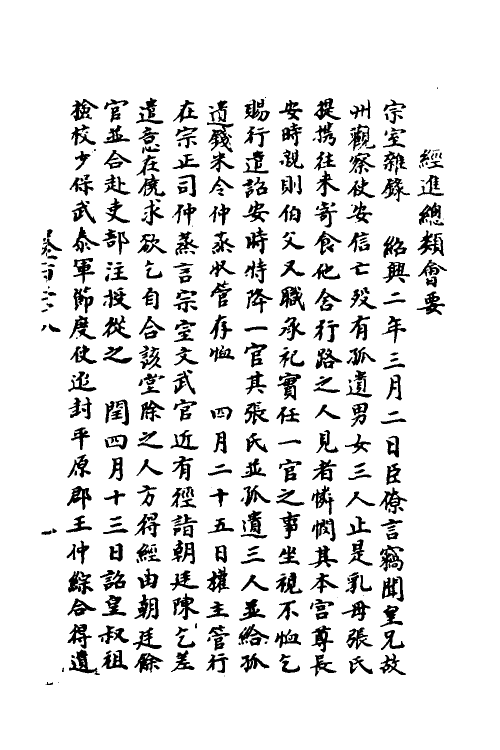 經進總類會要
宗室雜錄　紹興二年三月二日臣僚言竊聞皇兄故
州觀察使安信亡歿有孤遺男女三人止是乳母張氏
提攜往来寄食他舍行路之人見者憐憫其本宫尊長
安時親則伯父又職承祀實任一官之事坐視不恤乞
賜行遣詔安時特降一官其張氏並孤遺三人並給孤
遺錢米令仲蒸收管存恤　四月二十五日權主管行
在宗正司仲蒸言宗室文武官近有徑詣朝廷陳乞差
遣意在僥求欲乞自合該堂除之人方得經由朝廷餘
官並合赴吏部注授從之　閏四月十三日詔皇叔祖
檢校少保武泰軍節度使追封平原郡王仲綜合得遺
卷一百二六八
一